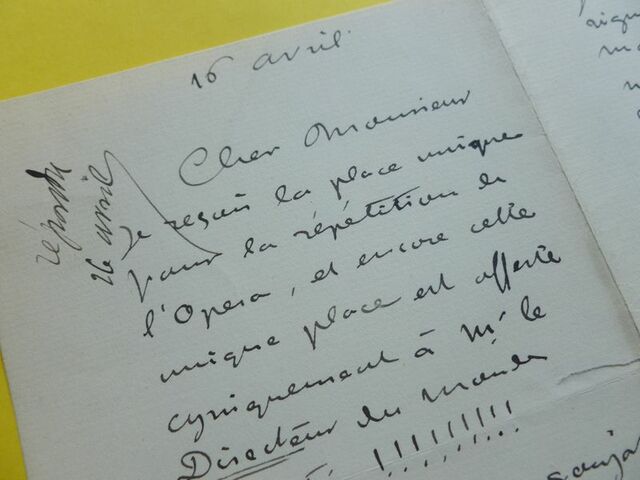 16 avril.
répondu
26 avril
Cher Monsieur
Je reçois la place unique
pour la répétition de
l'Opera, et encore cette
unique place est offerte
cyniquement à Mr le
Directeur du Monde
!!!!!!!!!